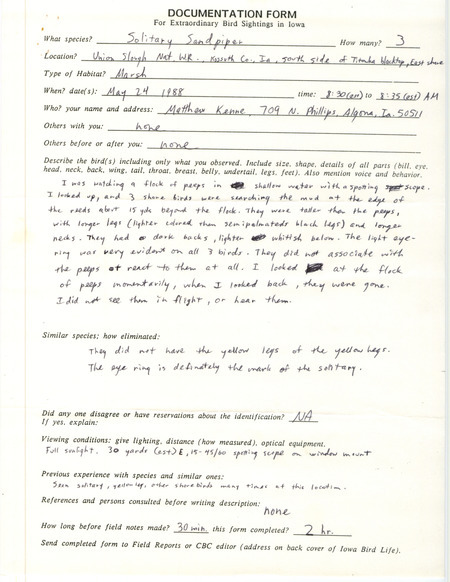 DOCUMENTATION FORM
For Extraordinary Bird Sightings in Iowa
What species? Solitary Sandpiper How many? 3
Location? Union Slough Nat. W.R., Kossuth Co., Ia, south side of Titonka blacktop, East shore
Type of Habitat? Marsh
When? date(s): May 24 1988 time: 8:30 (est) to 8:35 (est) AM
Who? your name and address: Matthew Kenne, 709 N. Phillips, Algona, Ia. 50511
Others with you: none
Others before or after you: none
Describe the bird(s) including only what you observed. Include size, shape, details of all parts (bill, eye,
head, neck, back, wing, tail, throat, breast, belly, undertail, legs, feet). Also mention voice and behavior.
I was watching a flock of peeps in shallow water with a spotting scope.
I looked up, and 3 shore birds were searching the mud at the edge of
the reeds about 15 yds beyond the flock. They were taller than the peeps,
with longer legs (lighter colored then semipalmateds black legs) and longer
necks. They had dark backs, lighter whitish below. The light eye-
ring was very evident on all 3 birds. They did not associate with
the peeps or react to them at all. I looked at the flock
of peeps momentarily, when I looked back, they were gone.
I did not see them in flight, or hear them.
Similar species; how eliminated:
They did not have the yellow legs of the yellowlegs.
The eye ring is definately the mark of the solitary.
Did any one disagree or have reservations about the identification? NA
If yes, explain:
Viewing conditions: give lighting, distance (how measured), optical equipment.
Full sunlight. 30 yards (est) E, 15-45/60 spotting scope on window mount
Previous experience with species and similar ones:
Seen solitary, yellowleg, other shore birds many times at this location.
References and persons consulted before writing description:
none
How long before field notes made? 30 min. this form completed? 2 hr.
Send completed form to Field Reports or CBC editor (address on back cover of Iowa Bird Life).